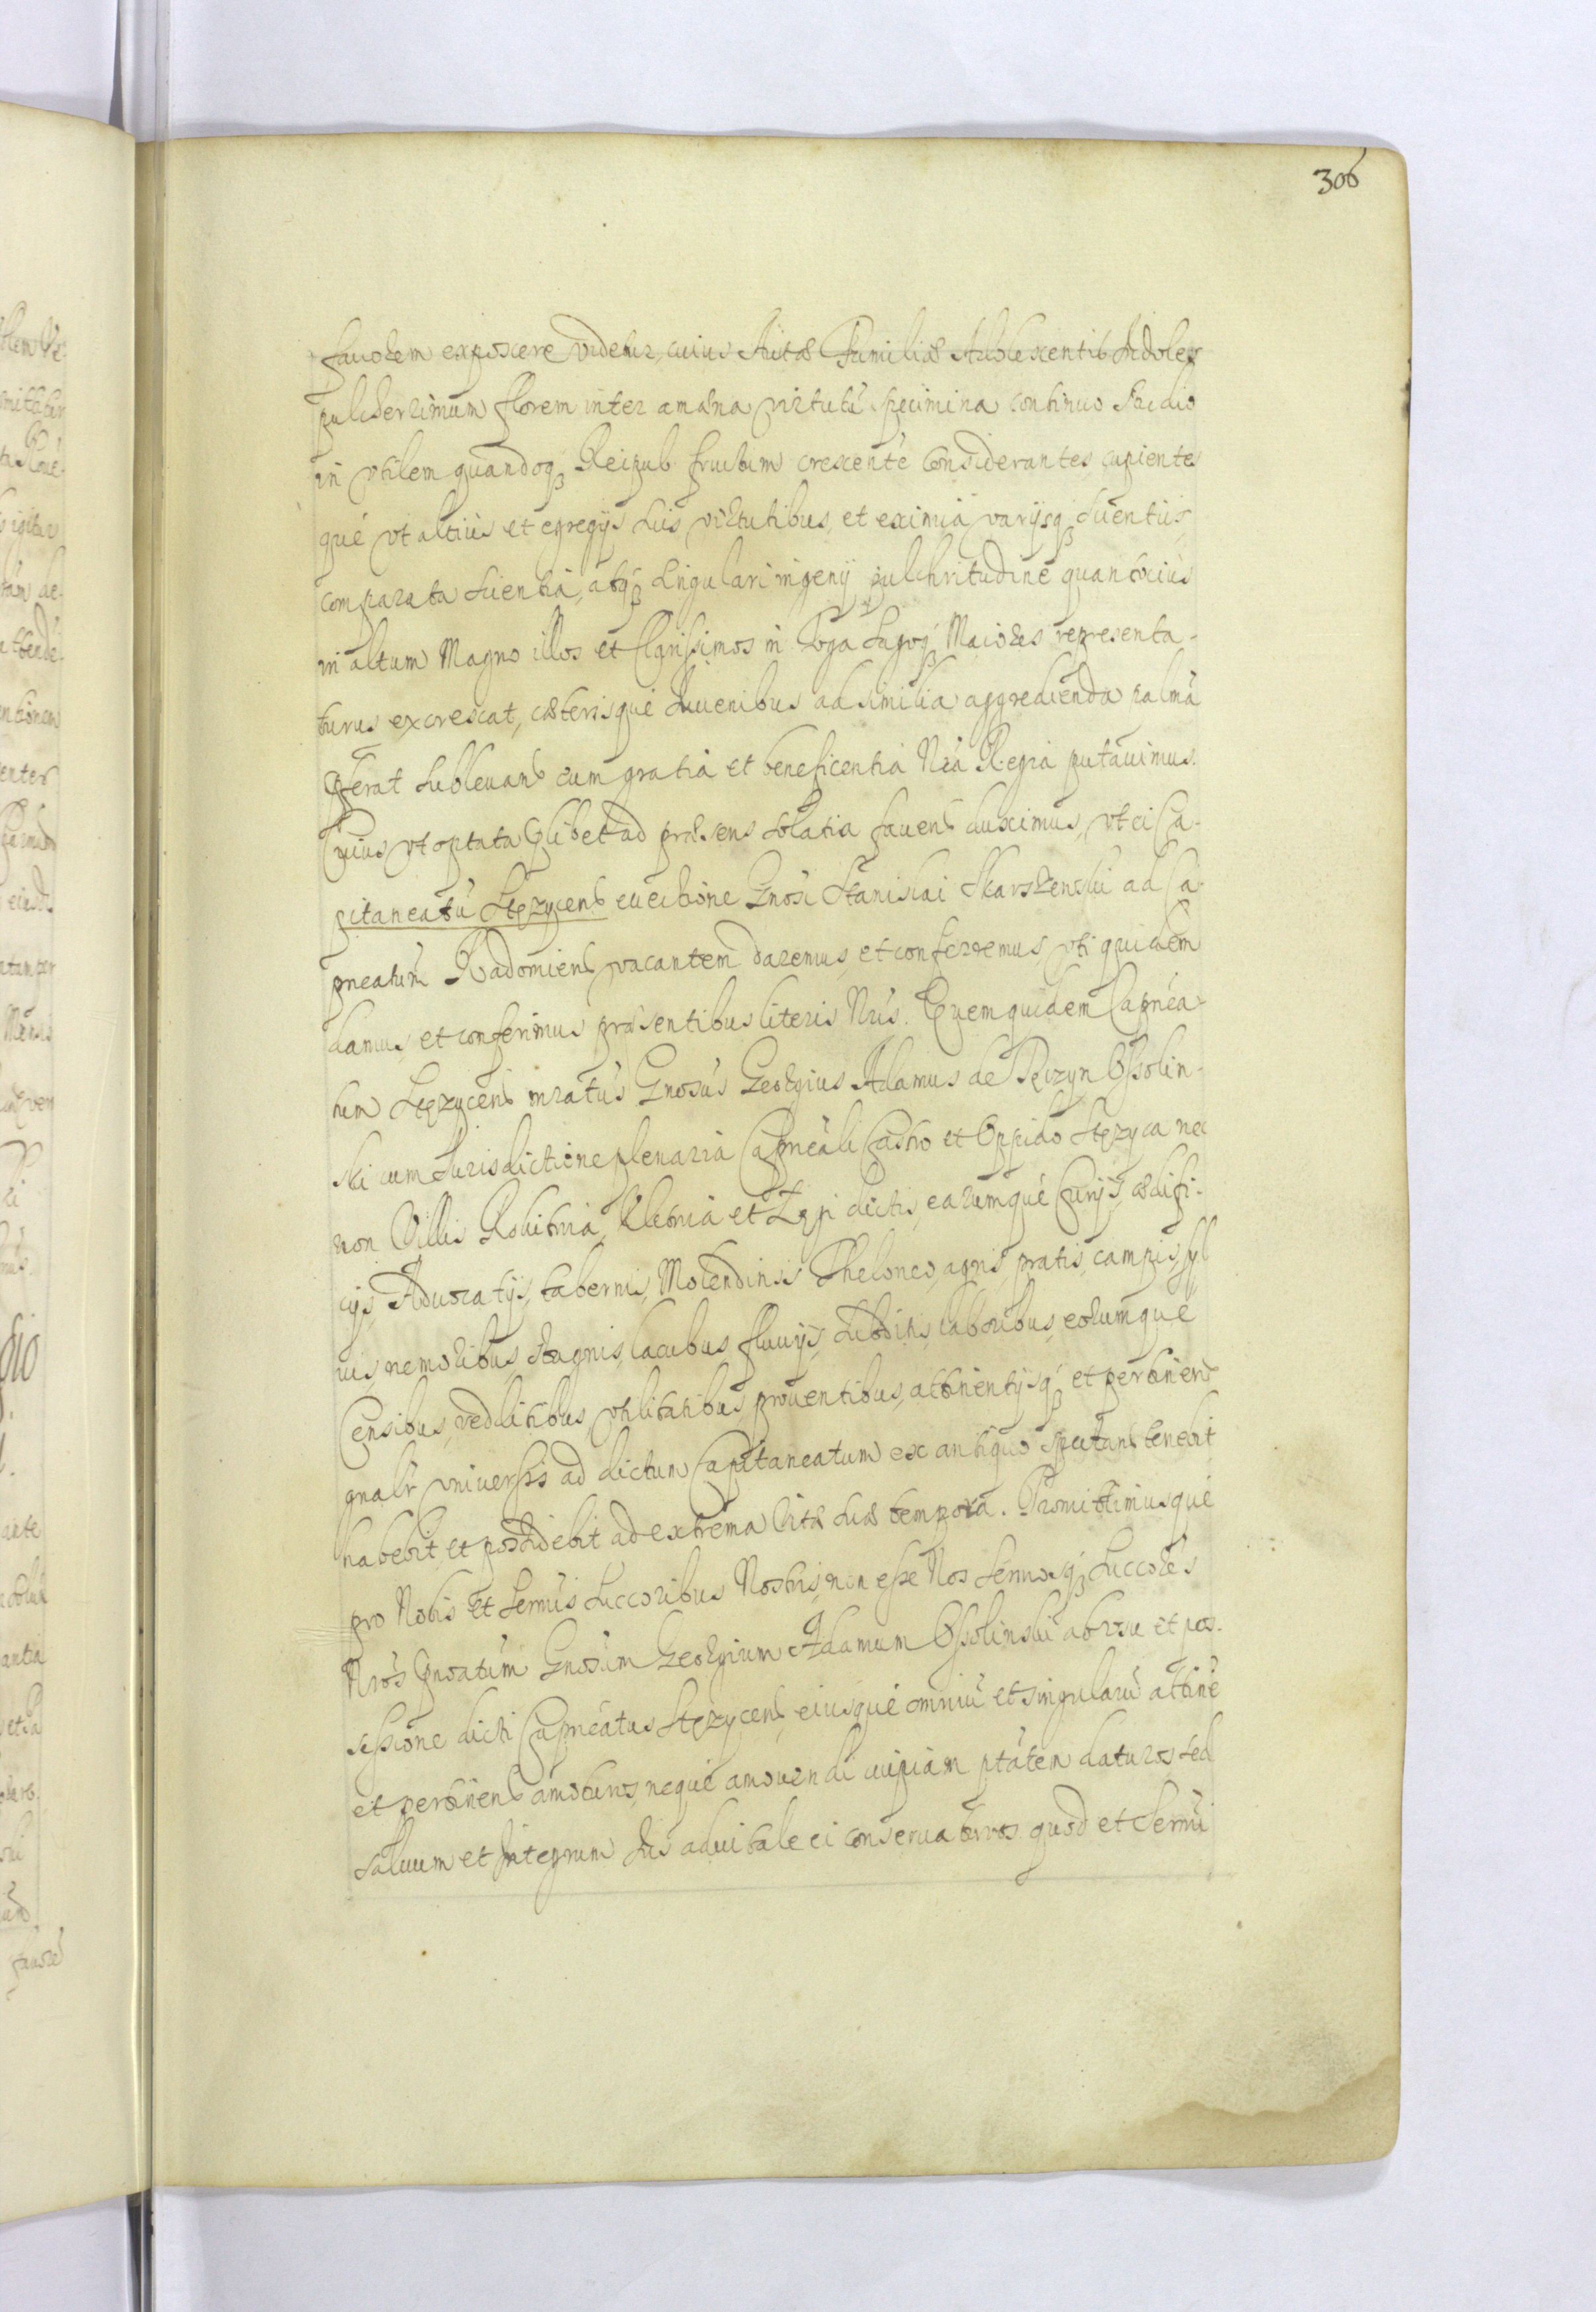 306
fauorem exposcere videtur, cuius Auitæ Familiæ Adolescentis Indolem
pulcherrimum florem inter amæna virtutū specimina continuo studio
in vtilem quandoq; Reipub. fructum crescentē considerantes cupientes
qué vt altius et egregijs suis virtutibus, et eximia varijsq; scientijs
comparata scientia, atq; singulari ingenij pulchritudine quantocius
in altum Magno illos et Clarissimos in Toga Sagoq; Maiores representa-
turus excrescat, cæterisque Iuuenibus ad similia aggredienda palmā
præferat subleuand eum gratia et beneficentia Nra Regia putauimus.
Cuius vt optata quælibet ad præsens solatia fauend duximus, vt ei Ca-
pitaneatū Stęzycens euectione Gnosi Stanislai Skarszewski ad Ca-
pneatum Radomiens vacantem daremus, et conferremus, vti quidem
damus, et conferimus præsentibus literis Nris. Quem quidem Capnea-
tum Stęzycens mratus Gnosus Georgius Adamus de Tęczyn Ossolin-
ski cum Iurisdictione plenaria Capneali Castro et Oppido Stęzyca nec
non Villis Rokitnia, Kletnia et Lępi dictis, earumqué Curijs, ædifi-
cijs, Aduocatijs, tabernis, Molendinis Theloneo, agris, pratis, campis, syl
uis, nemoribus, stagnis, lacubus fluuijs, subditis, laboribus, eorumqué
Censibus, redditibus, vtilitatibus, prouentibus, attinentijsq; et pertinen
gnalr vniuersis ad dictum Capitaneatum ex antiquo spectan tenebit
habebit, et possidebit ad extrema Vitæ suæ tempora. Promittimusqué
pro Nobis et Sermis Succoribus Nostris, non esse Nos Sermosq; Succores
Nros pnoatum Gnosum Georgium Adamum Ossolinski ab vsu et pos-
sessione dicti Capneatus Stęzycens eiusqué omniū et singularū attinē
et pertinens amoturos, neque amouendi cuipiam ptatem daturos sed
saluum et Integrum Ius aduitale ei conseruaturos. quod et Sermi